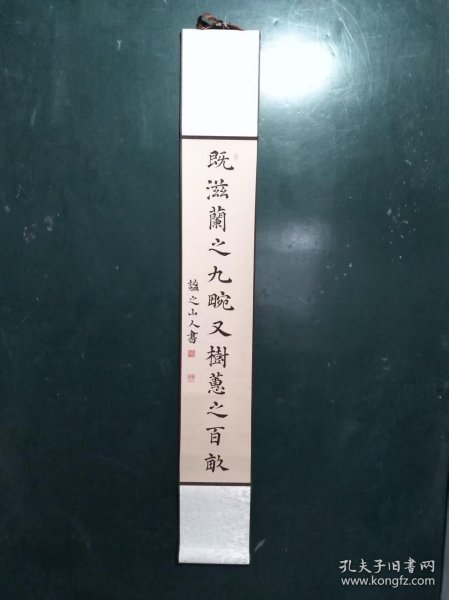 既滋蘭之九畹又樹蕙之百畝
之山人書
孔夫子旧书网
www.kongfz.com